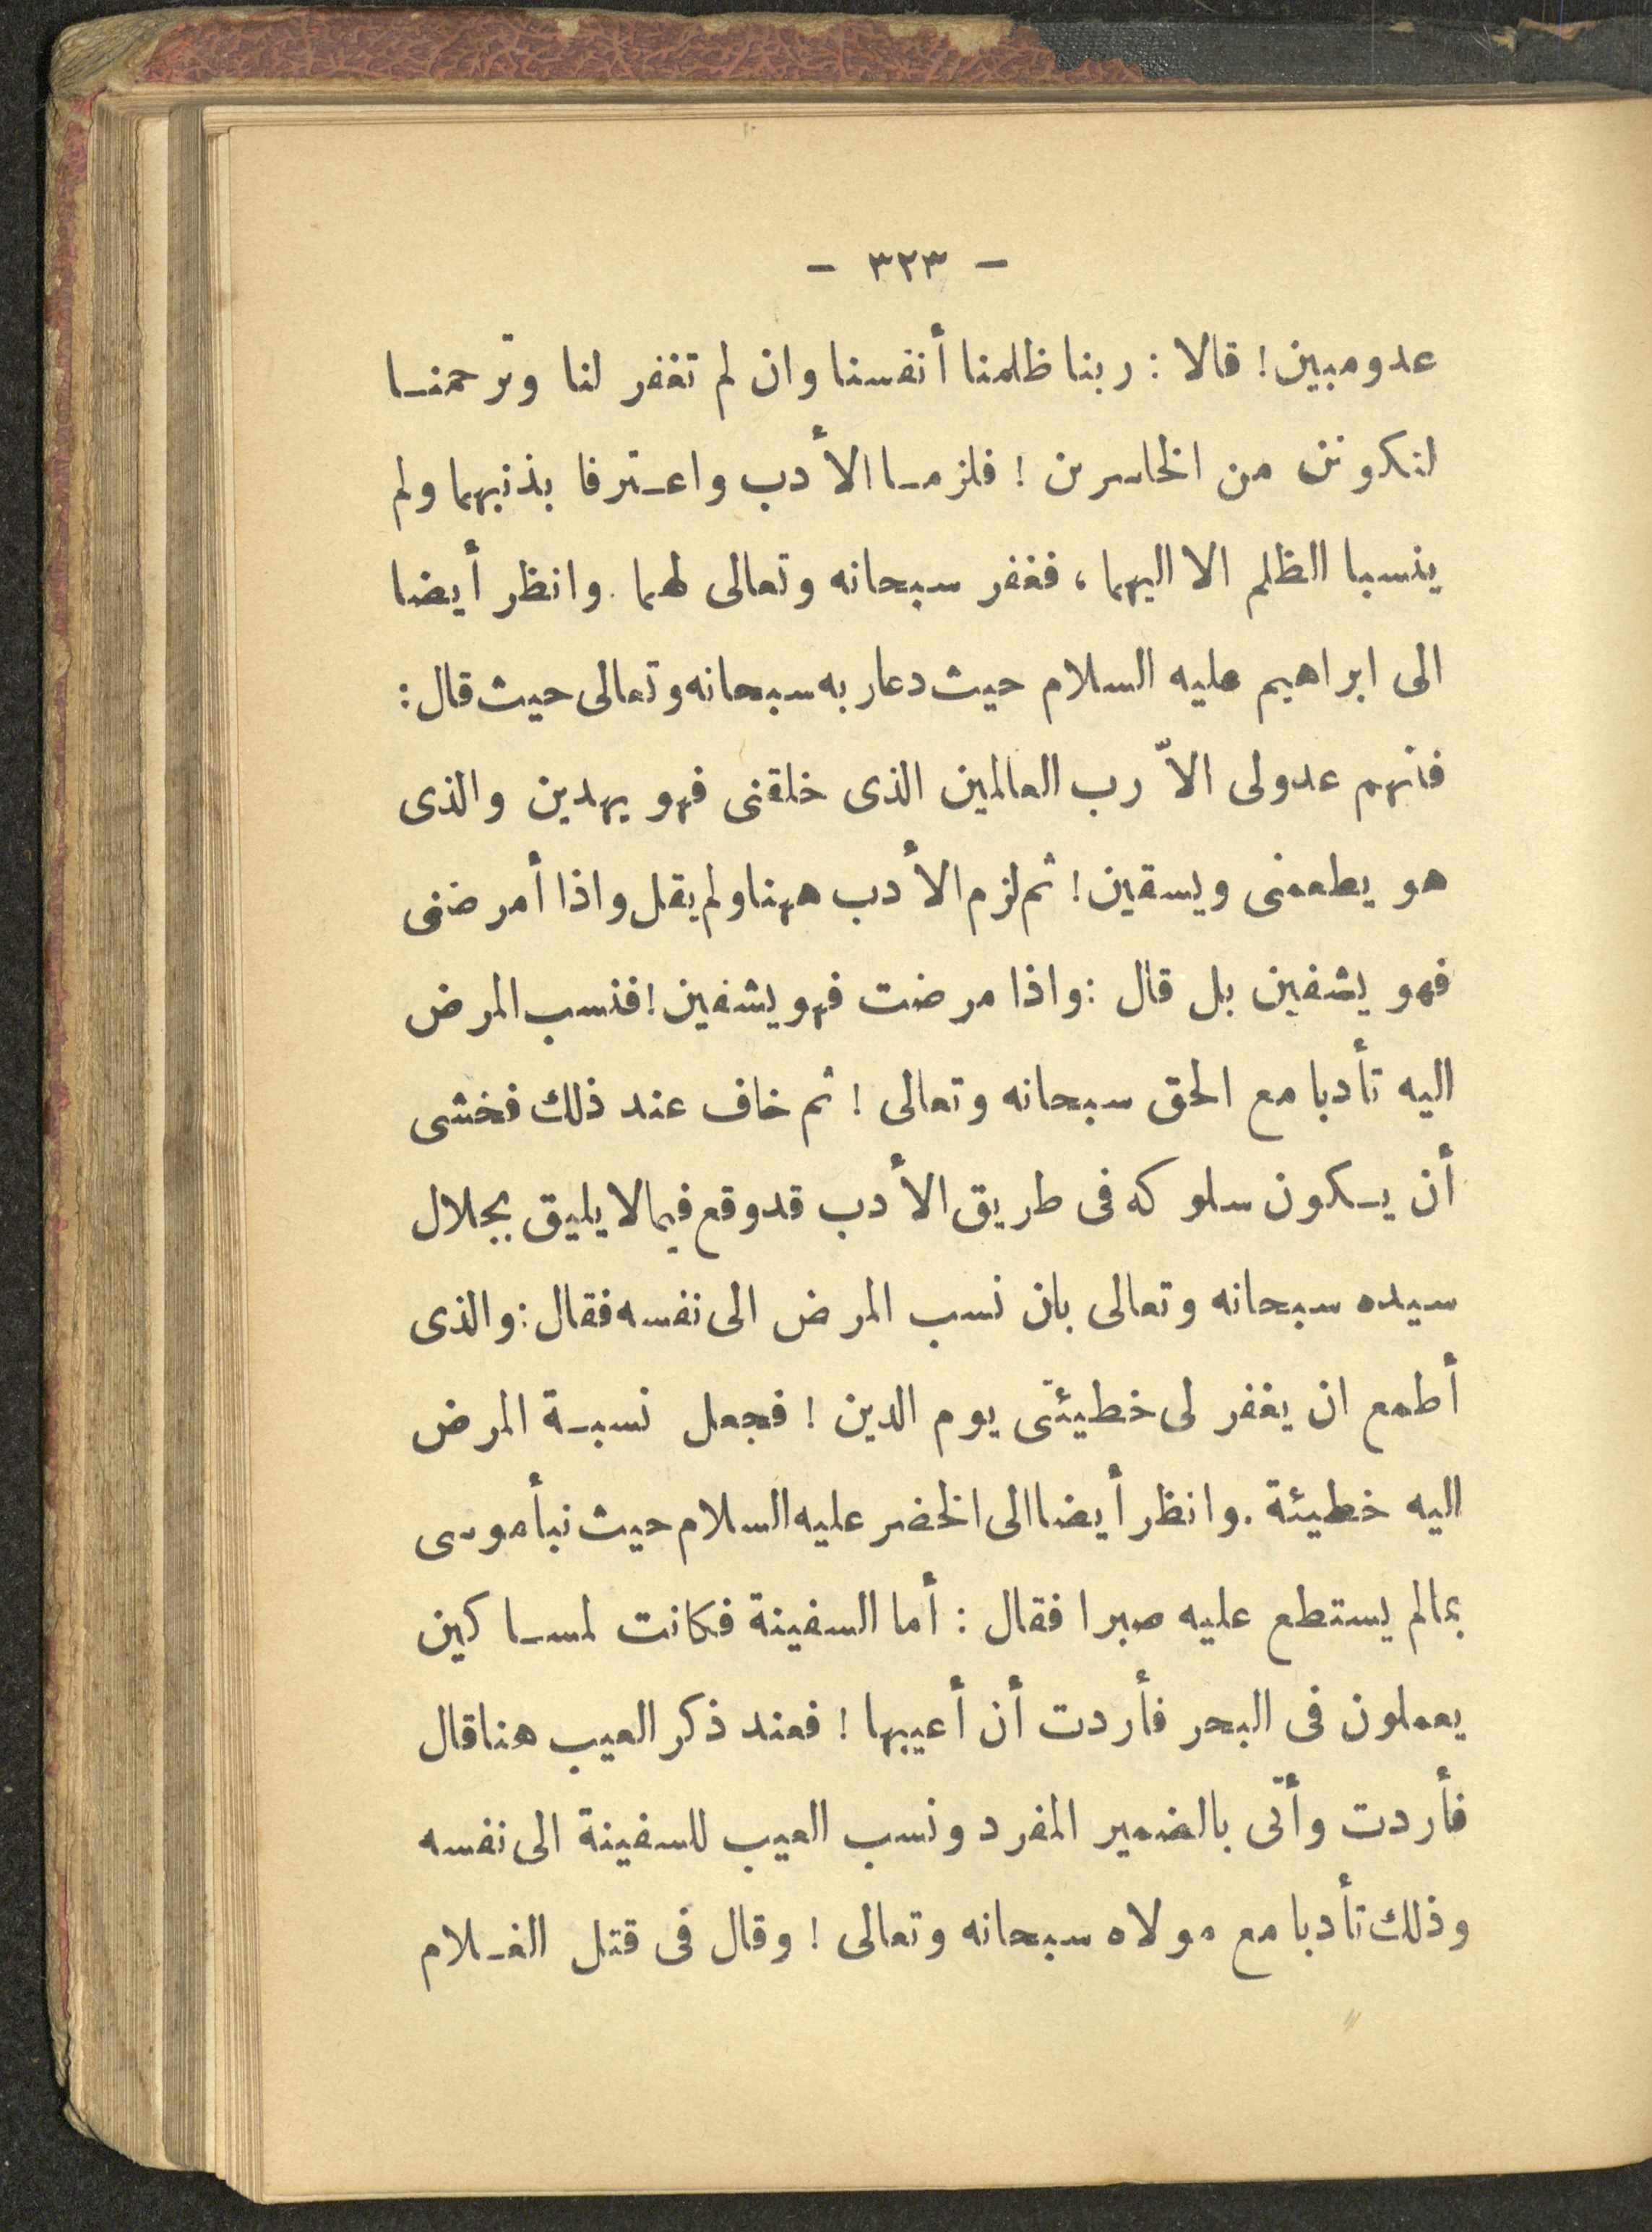 - ٣٢٣ -
عدو مبين! قالا : ربنا ظلمنا أنفسنا وان لم تغفر لنا وترحمنا
لنكونن من الخاسرين ! فلزما الأدب واعترفا بذنبهما ولم
ينسبا الظلم الا اليهما ، فغفر سبحانه وتعالى لهما . وانظر أيضا
الى ابراهيم عليه السلام حيث دعا ربه سبحانه وتعالى حيث قال :
فانهم عدو لى الاّ رب العالمين الذى خلقنى فهو يهدين والذى
هو يطعمنى ويسقين ! ثم لزم الأدب ههنا ولم يقل واذا أمرضنى
فهو يشفين بل قال : واذا مرضت فهو يشفين ! فنسب المرض
اليه تأدبا مع الحق سبحانه وتعالى ! ثم خاف عند ذلك فخشى
أن يكون سلوكه فى طريق الأدب قد وقع فيما لا يليق بجلال
سيده سبحانه وتعالى بان نسب المرض الى نفسه فقال : والذى
أطمع ان يغفر لى خطيئتى يوم الدين ! فجعل نسبة المرض
اليه خطيئة . وانظر أيضا الى الخضر عليه السلام حيث نبأ موسى
بما لم يستطع عليه صبرا فقال : أما السفينة فكانت لمساكين
يعملون فى البحر فأردت أن أعيبها ! فعند ذكر العيب هنا قال
فأردت وأتى بالضمير المفرد ونسب العيب للسفينة الى نفسه
وذلك تأدبا مع مولاه سبحانه وتعالى ! وقال فى قتل الغلام